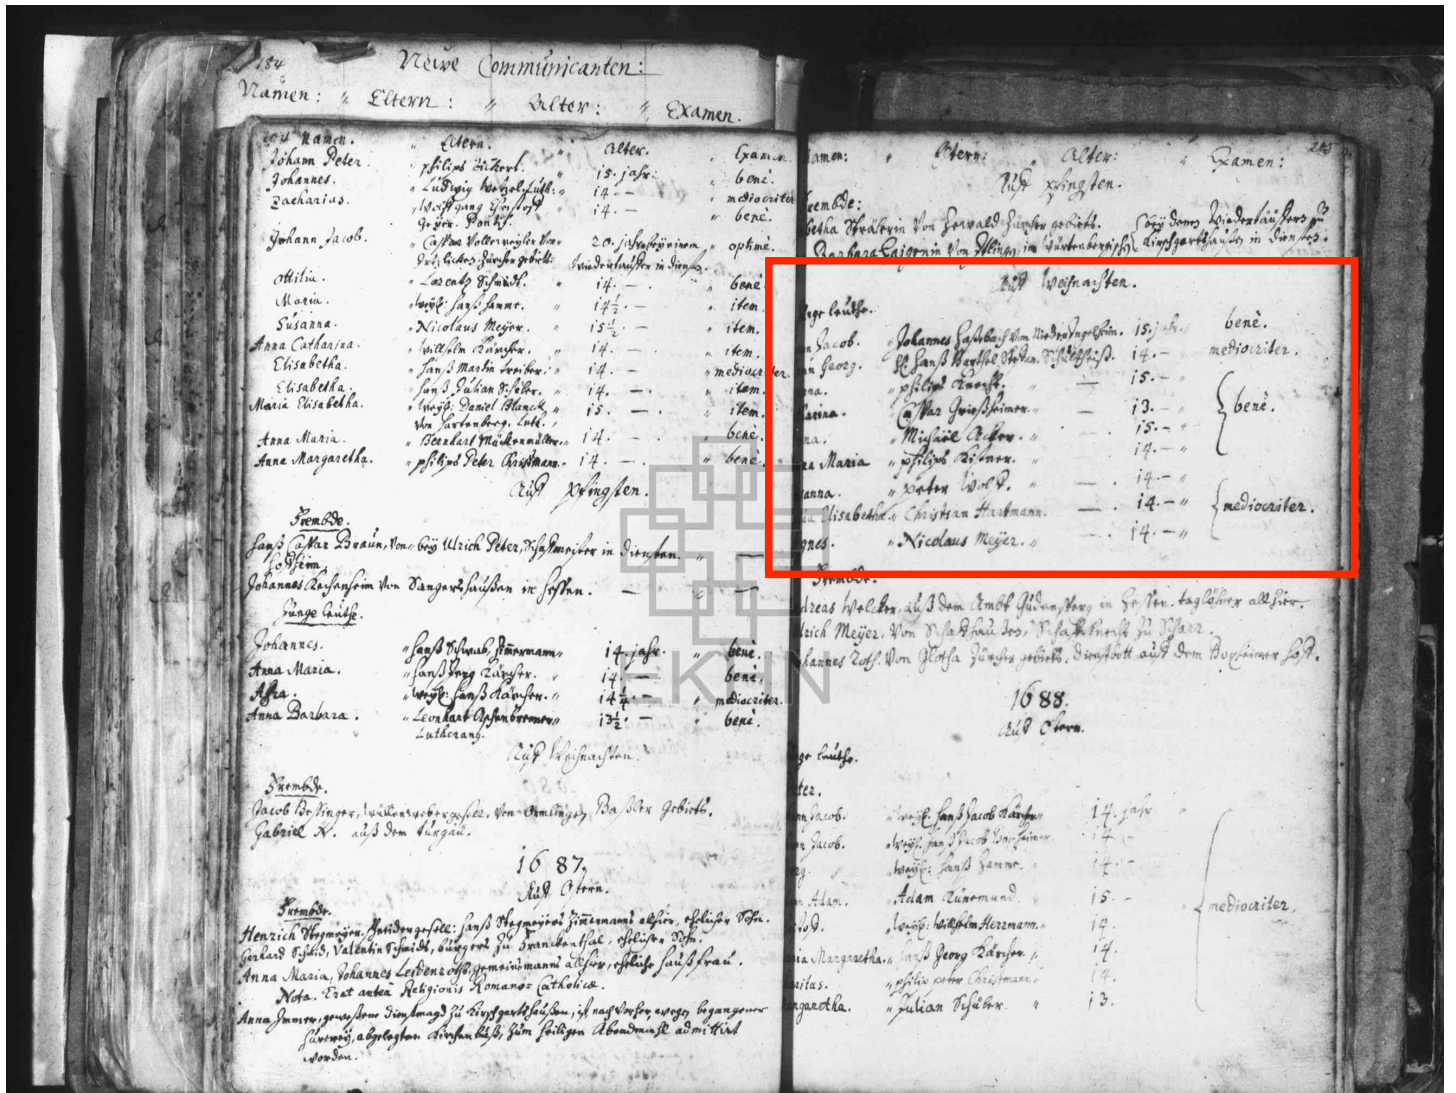 184
Neüe Communicanten:
Namen: " Eltern: " Alter: " Examen.
184 Namen. " Eltern. " Alter. " Examen
Johann Peter. " philips Eickert. 15. jahr: " benè.
Johannes. " Ludwig Wetzel, Luth: " 14. — " mediocriter
Zacharias. " Wolfgang Christoph 14. — " benè.
Geyer. Pontif.
Johann Jacob. " Caspar Vollenweyler von 20. jahr bey einem " optimè.
Zürcher gebiets. Wiedertäuffer in diensten.
Ottilia. " Lorentz Schmidt. " 14. — . " benè.
Maria. " weyl: Hanß Hamme. " 14½. — " item.
Susanna. " Nicolaus Meyer. " 15½. — . " item.
Anna Catharina. " Willhelm Kärcher. " 14. — . " item.
Elisabetha. " Hanß Martin Treiber. " 14. — . " mediocriter.
Elisabetha. " Hanß Julian Schüber. " 14. — . " item.
Maria Elisabetha. " weyl: Daniel Planck 15. — . " item.
von Hartenberg. Luth.
Anna Maria. " Bernhart Mückenmüller. " 14. — . " benè.
Anna Margaretha. " philips Peter Christmann. " 14. — . " benè.
Auff pfingsten.
Frembde.
Hanß Caspar Braun, von bey Ulrich Peter, Schaffmeister in diensten. "
Johannes von Sangershaußen in Hessen. — " —
Junge leuthe.
Johannes. " Hanß Schwab, Zimmermann " 14. jahr. " benè.
Anna Maria. " Hanß Jerg Kärcher. " 14. — . benè.
Afra. " weyl: Hanß Kärcher. " 14¼. — " mediocriter.
Anna Barbara. " Leonhart Aschenbrenner " 13½. — " benè.
Lutheran.
Auff Weihnachten.
Frembde.
Jacob Bossinger, wüllenwebergesell. von Ormlingen, Baßler Gebiets.
Gabriel N. auß dem Turgau.
1687.
Auff Ostern.
Frembde.
Henrich Stegmeyer, : Hanß Stegmeyers Zimmermanns allhier, ehelicher Sohn.
Gerhard Schmid, Valentin Schmids, burgers zu Franckenthal, ehelicher Sohn.
Anna Maria, Johannes Leidenroths, gemeinsmanns allhier, eheliche haußfrau.
Nota. Erat antea Religionis Romano-Catholicæ.
Anna Immer, geweßene dienstmagd zu Kirschgartshaußen, ist nach vorher, wegen begangener
Hurerey, abgelegten Kirchenbuß, zum heiligen Abendmahl admittirt
worden.
amen: " Eltern: " Alter: " Examen: 285
Auff pfingsten.
rembde:
betha Strälerin von Herwald Zürcher gebiets. bey denen Wiedertäuffern zu
Barbara von im Würtenbergischen Kirschgartshaußen in diensten.
Auff Weihnachten.
nge leuthe.
n Jacob. " Johannes Haßbach von Nieder Ingelheim. 15. jahr. benè.
an Georg. " H. Hanß Barthel Stephan, Schultheiß. 14. — mediocriter.
nna. " philips Knecht. — 15. — "
harina. " Caspar Grießheimer. " — 13. — " benè.
na. " Michaël Acker. " — . 15. — "
na Maria " philips Kißner. — . 14. — "
anna. " peter Wolf. " — . 14. — "
ria Elisabetha. " Christian Hartmann. — . 14. — " mediocriter.
gnes. " Nicolaus Meyer. " — . 14. — "
Frembde.
dreas Welcker, auß dem Ambt Gudensperg in Hessen. taglöhner allhier.
lrich Meyer, von Schaffhaußen, Schaffknecht zu Scharr.
hannes Roth. von Zürcher gebiets, dienstbott auff dem Bopheimer hoff.
1688.
Auff Ostern.
nge leuthe.
eter.
ann Jacob. " weyl. Hanß Jacob Kärcher 14. jahr "
nn Jacob. " weyl. Hanß Jacob Bopheimer. 14. —
rg. " weyl: Hanß Hamme. " 14. —
n Adam. " Adam Künemund. " 15. — mediocriter.
istoph. " weyl: Willhelm Herrmann. " 14.
ria Margaretha. " Hanß Georg Kärcher. " 14.
aritas. " philips peter Christmann. 14.
argaretha. " Julian Schüber. " 13.
EKHN